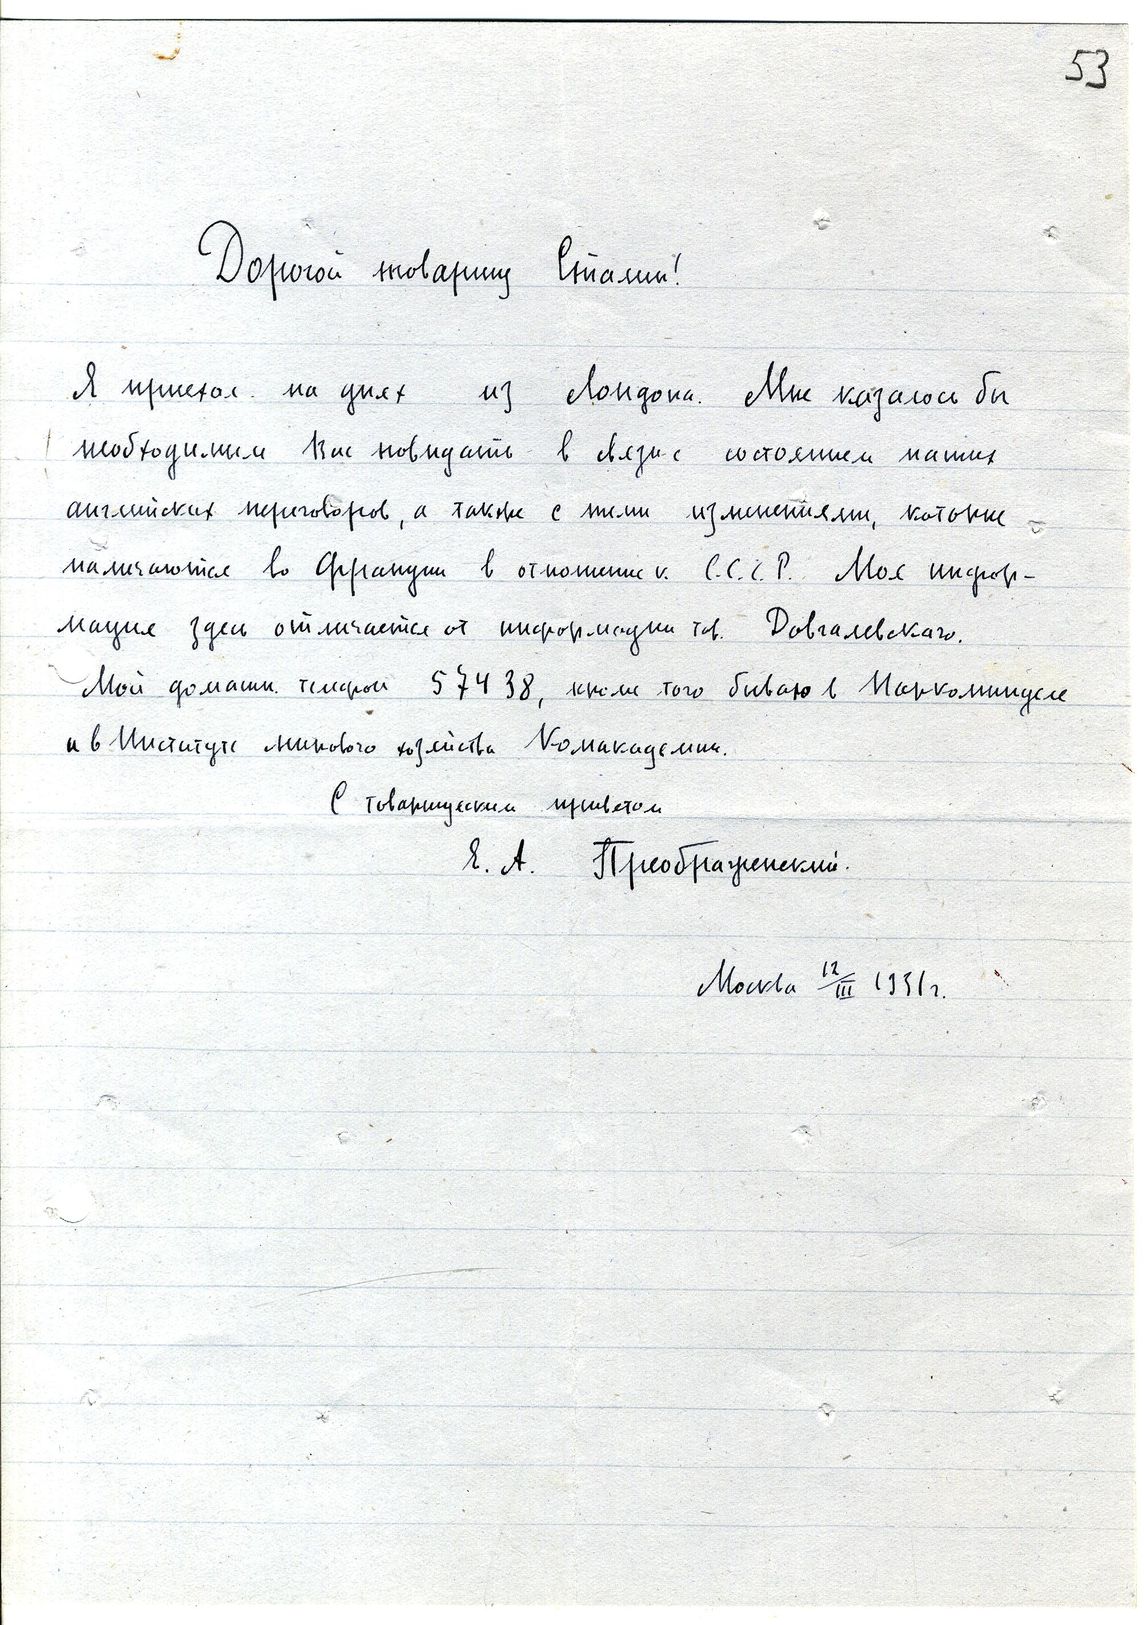 53
Дорогой товарищ Сталин!
Я приехал на днях из Лондона. Мне казалось бы
необходимым Вас повидать в связи с состоянием наших
английских переговоров, а также с теми изменениями, которые
намечаются во Франции в отношении к С.С.С.Р. Моя инфор-
мация здесь отличается от информации тов. Довгалевскаго.
Мой домашн. телефон 57438, кроме того бываю в Наркоминделе
и в Институте мирового хозяйства Комакадемии.
С товарищеским приветом
Е. А. Преображенский.
Москва 12/III 1931 г.